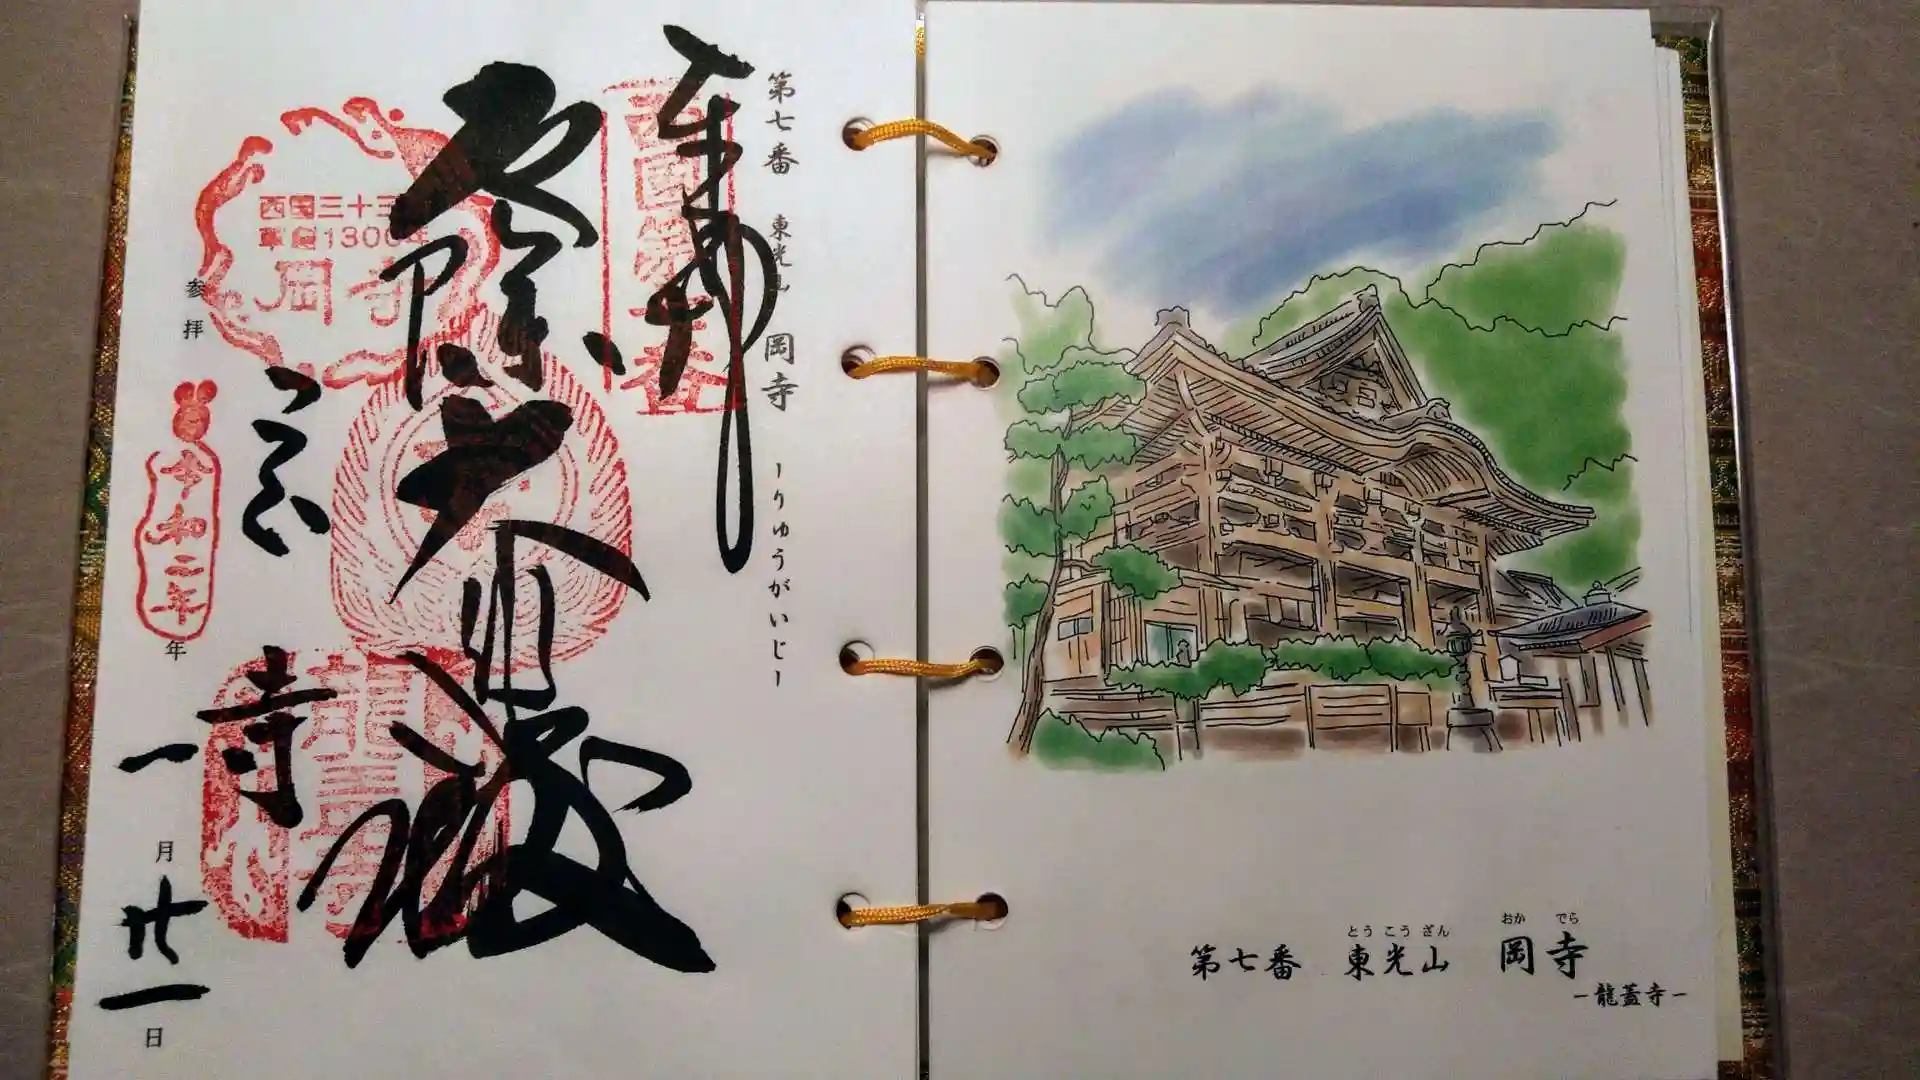 第七番 東光山 岡寺 ーりゅうがいじー
奉拝
西国第七番
西国三十三所
草創1300年
岡寺
厄除大悲殿
龍蓋寺
参拝
令和二年
年
一
月
廿一
日
寺
おか でら
とう こう ざん
第七番 東光山 岡寺
ー龍蓋寺ー